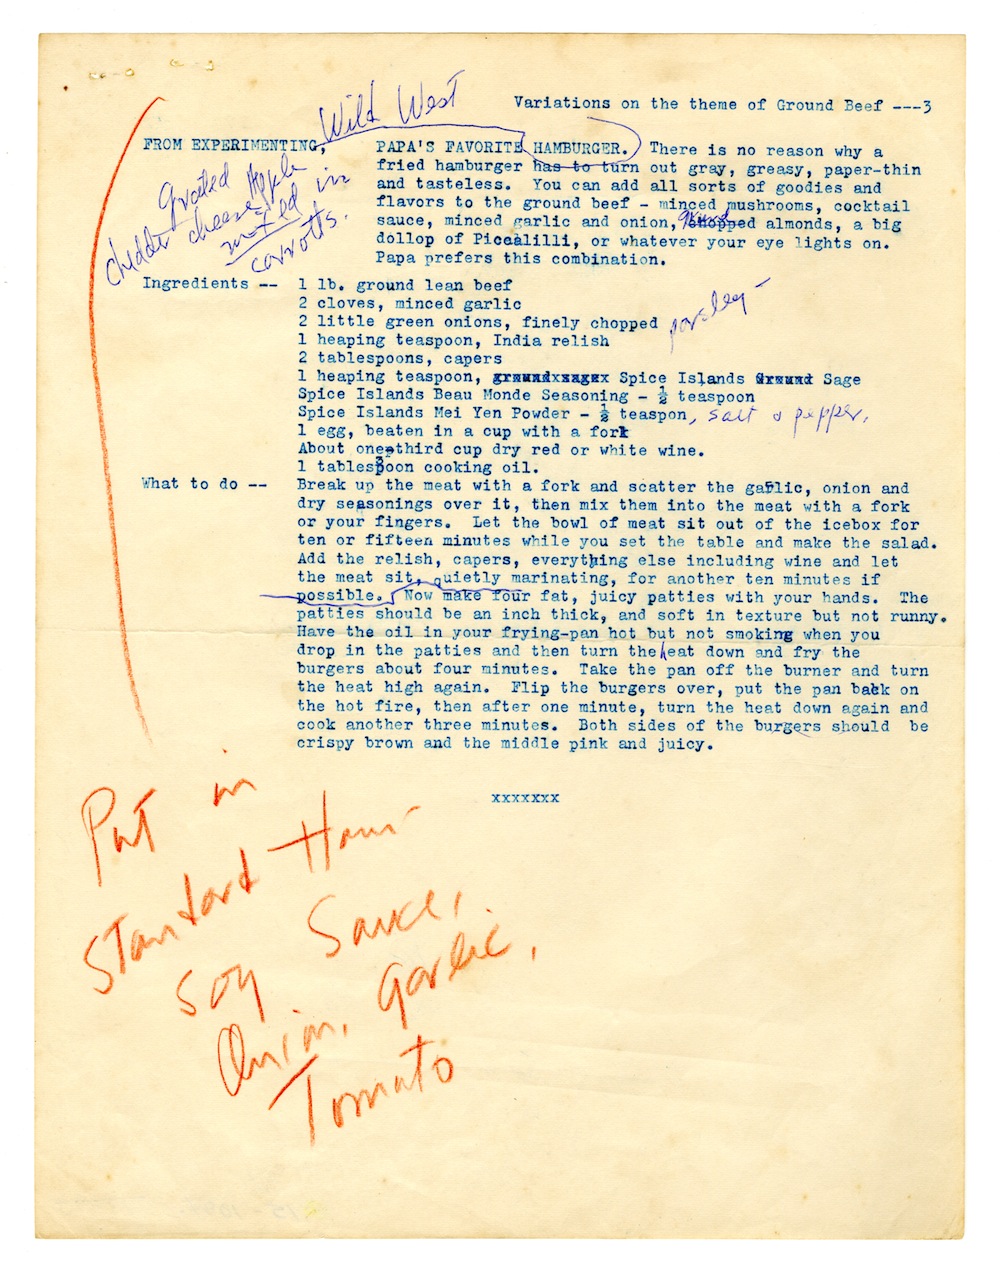 Variations on the theme of Ground Beef ---3
Wild West
FROM EXPERIMENTING, PAPA'S FAVORITE HAMBURGER. There is no reason why a
fried hamburger has to turn out gray, greasy, paper-thin
and tasteless. You can add all sorts of goodies and
flavors to the ground beef - minced mushrooms, cocktail
sauce, minced garlic and onion, ground chopped almonds, a big
dollop of Piccalilli, or whatever your eye lights on.
Papa prefers this combination.
Grated Apple
cheddar cheese
in
carrotts.
Ingredients -- 1 lb. ground lean beef
2 cloves, minced garlic
2 little green onions, finely chopped parsley -
1 heaping teaspoon, India relish
2 tablespoons, capers
1 heaping teaspoon, Spice Islands Ground Sage
Spice Islands Beau Monde Seasoning - ½ teaspoon
Spice Islands Mei Yen Powder - ½ teaspon, salt & pepper,
1 egg, beaten in a cup with a fork
About one-third cup dry red or white wine.
1 tablespoon cooking oil.
What to do -- Break up the meat with a fork and scatter the garlic, onion and
dry seasonings over it, then mix them into the meat with a fork
or your fingers. Let the bowl of meat sit out of the icebox for
ten or fifteen minutes while you set the table and make the salad.
Add the relish, capers, everything else including wine and let
the meat sit, quietly marinating, for another ten minutes if
possible. Now make four fat, juicy patties with your hands. The
patties should be an inch thick, and soft in texture but not runny.
Have the oil in your frying-pan hot but not smoking when you
drop in the patties and then turn the heat down and fry the
burgers about four minutes. Take the pan off the burner and turn
the heat high again. Flip the burgers over, put the pan back on
the hot fire, then after one minute, turn the heat down again and
cook another three minutes. Both sides of the burgers should be
crispy brown and the middle pink and juicy.
xxxxxxx
Put in
Standard Ham-
Soy Sauce,
Onion, Garlic,
Tomato